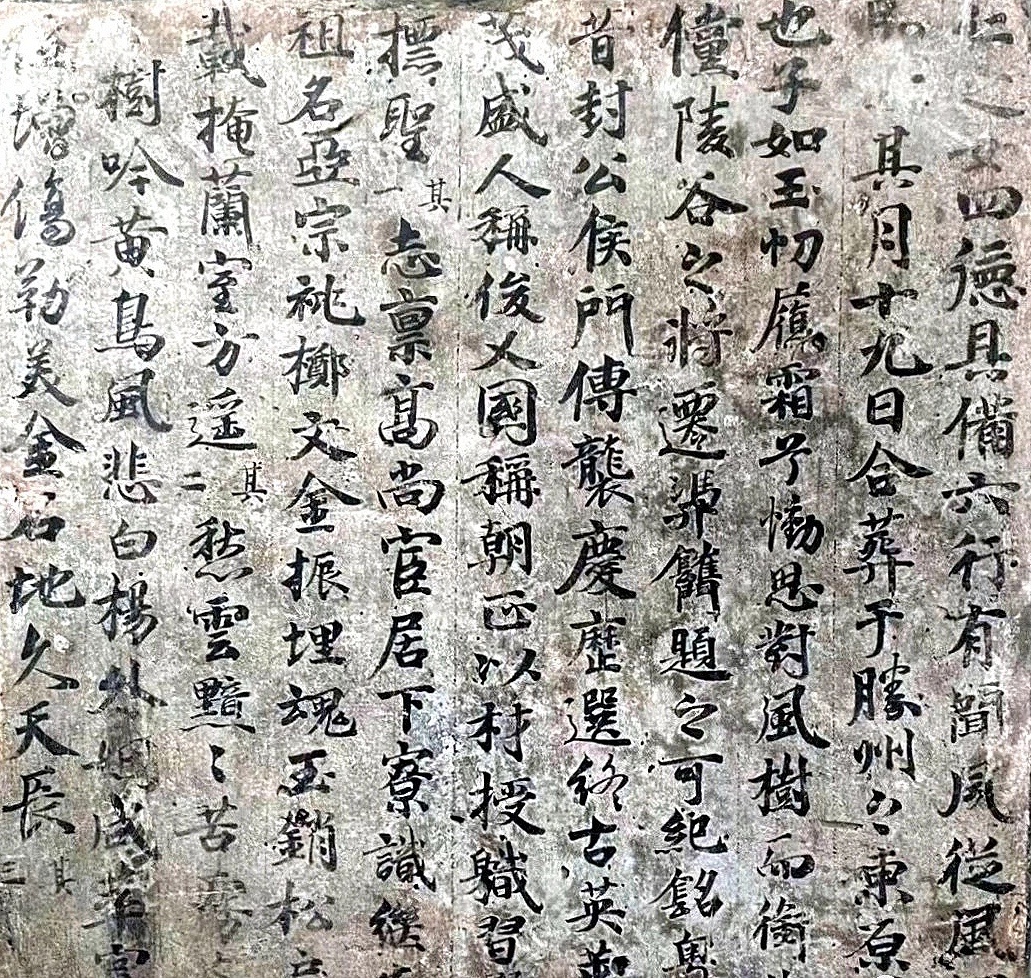 四德具備六行有聞風從風
其月十九日合葬于勝州々東原
也子如玉忉履霜兮慟思對風樹而銜
僮陵谷之將遷舉鐫題之可紀銘粵
昔封公侯門傳襲慶歷選終古英
茂盛人稱俊乂國稱朝正以材授職習
摽聖其一志禀髙尚宦居下寮識繼
祖名亞宗祧擲文金振埋魂玉銷松
載掩蘭室方遥其二愁雲黯々苦霧
樹吟黄鳥風悲白楊
增傷勒美金石地久天長其三